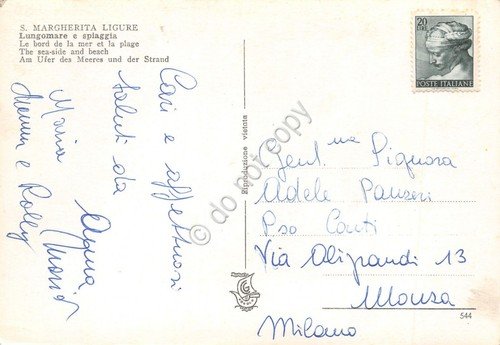 S. MARGHERITA LIGURE
Lungomare e spiaggia
Le bord de la mer et la plage
The sea-side and beach
Am Ufer des Meeres und der Strand
Cari e affettuosi
saluti da
Anna,
Maria
e Rolly
Riproduzione vietata
20
LIRE
POSTE ITALIANE
Gent.ma Signora
Adele Panzeri
Pso Conti
Via Aliprandi 13
Monza
Milano
544
© do not copy